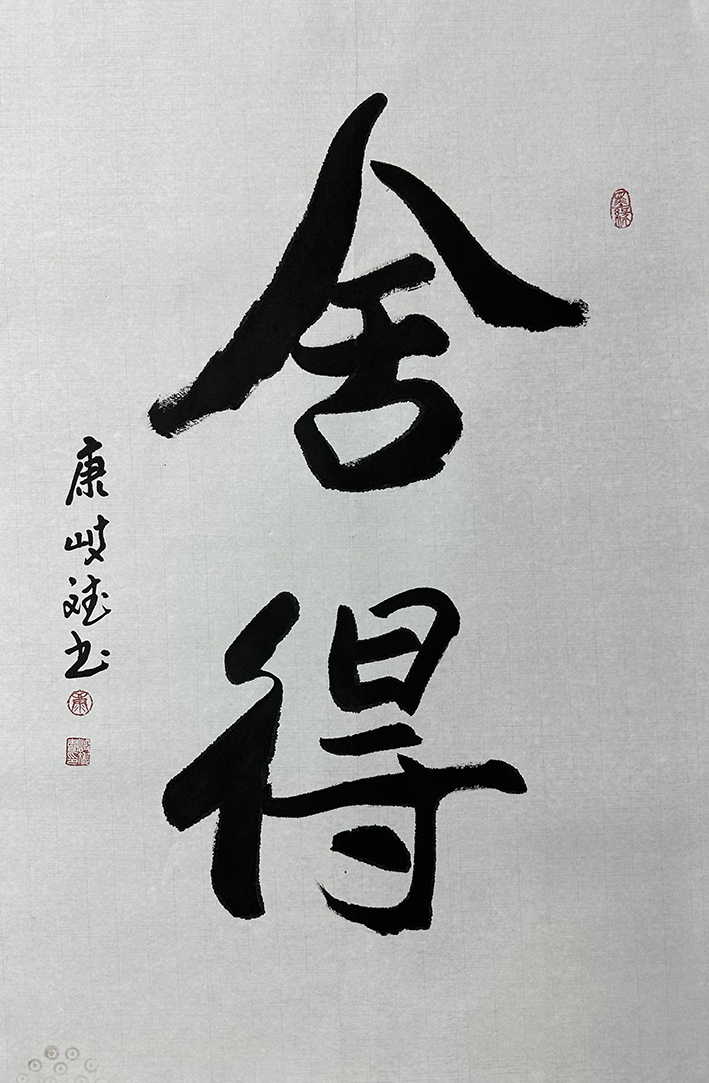 舍得
康岐斌书